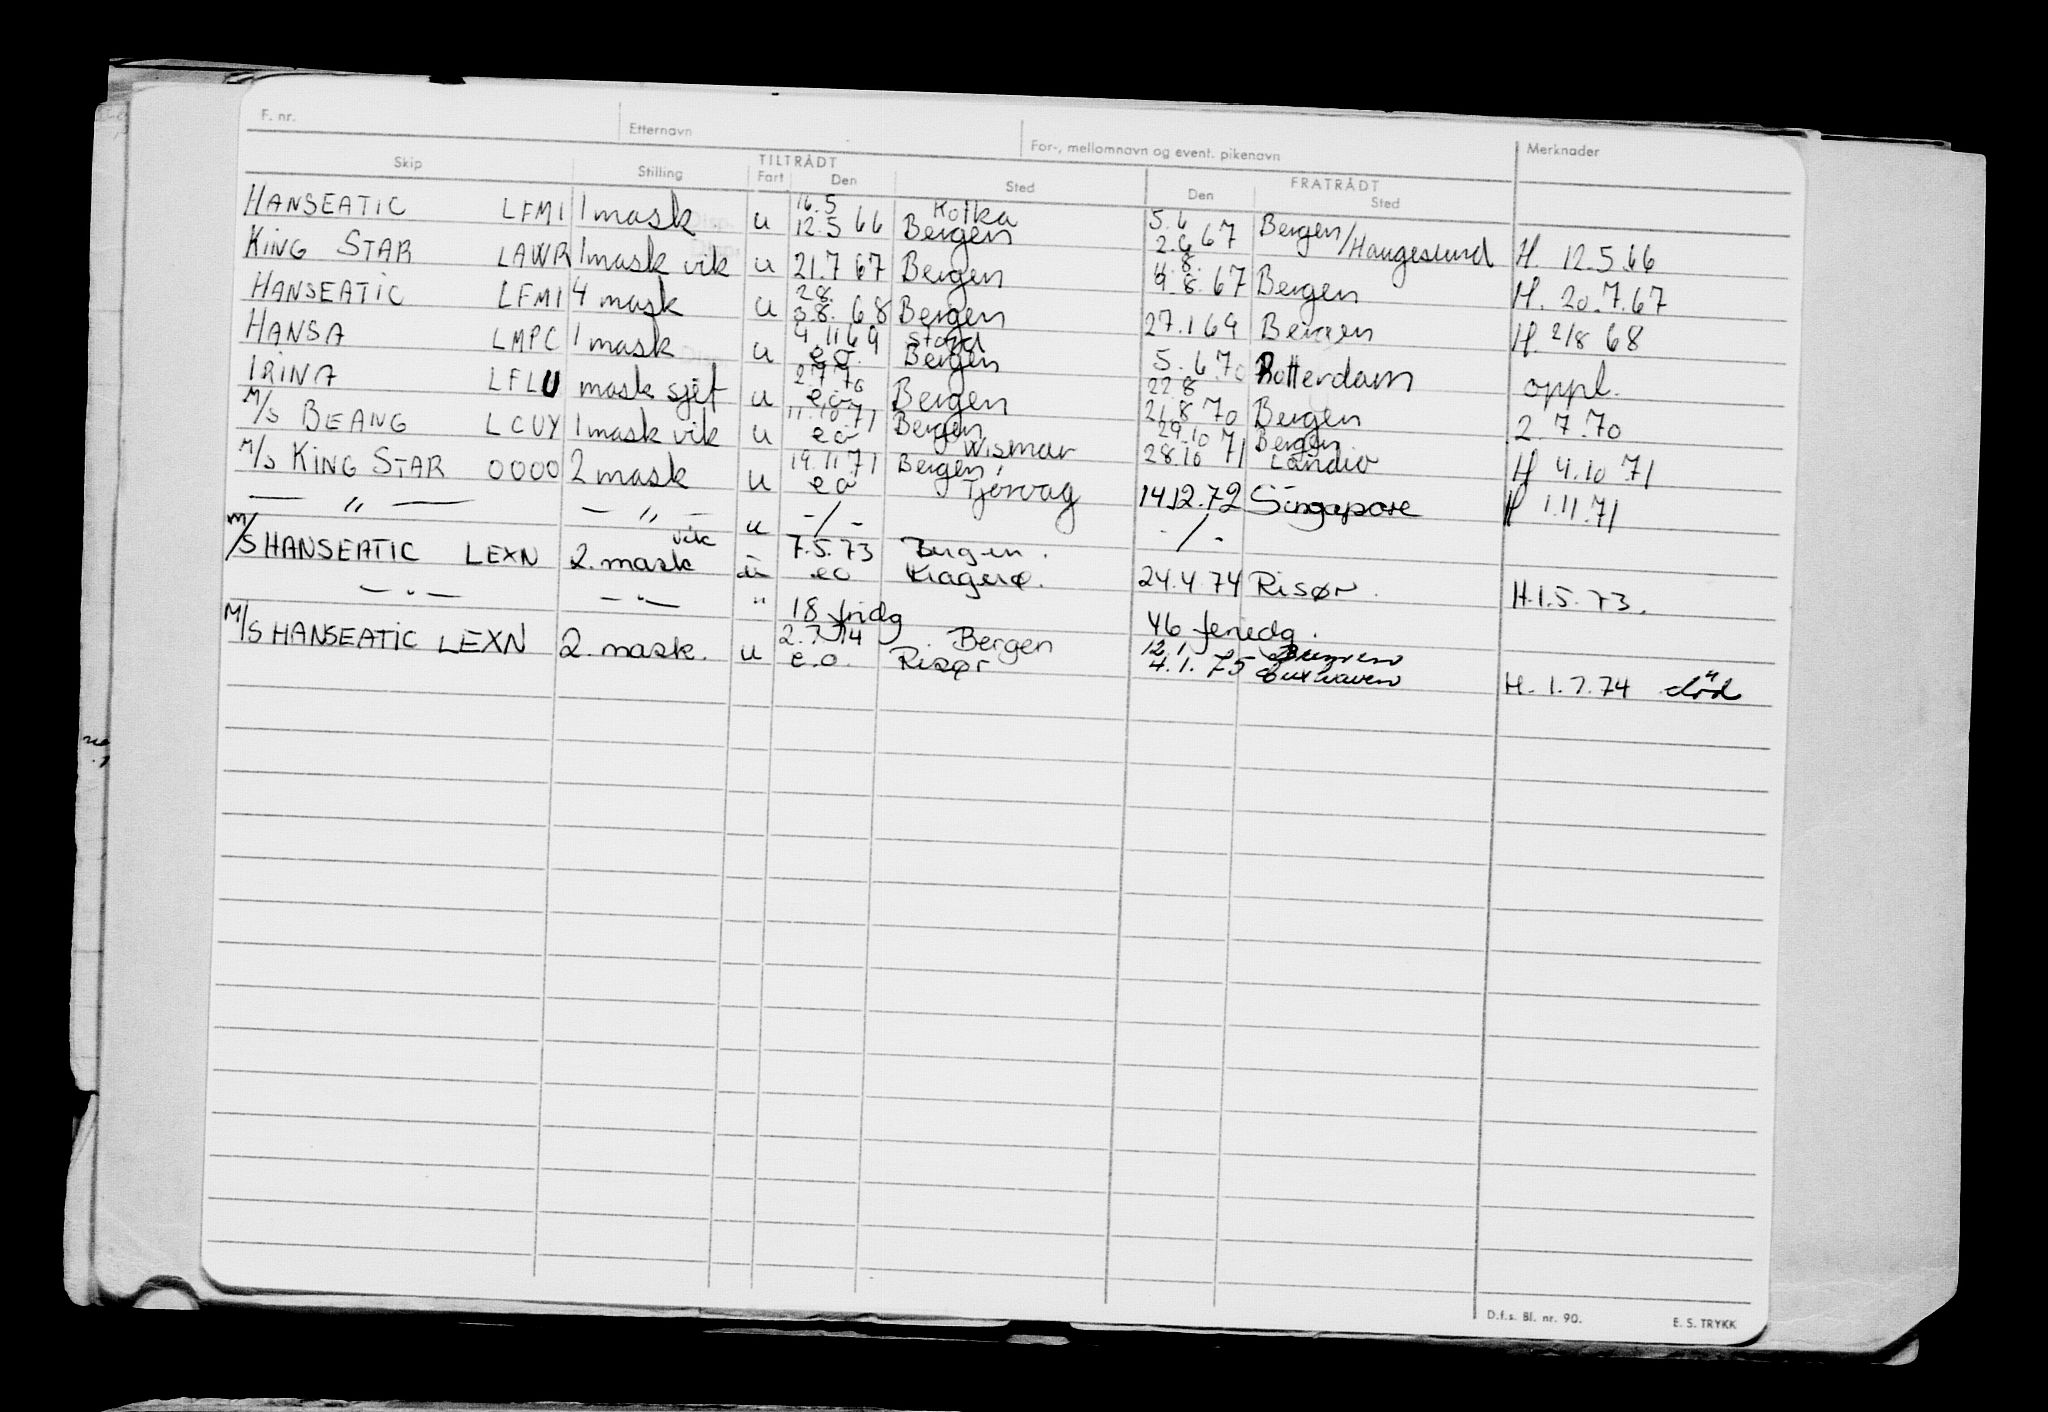 F. nr. Etternavn For-, mellomnavn og event. pikenavn Merknader
Skip Stilling TILTRÅDT Fart Den Sted FRATRÅDT Den Sted
16.5 Kotka 5.6
HANSEATIC LFMI 1 mask u 12.5 66 Bergen 2.6 67 Bergen/Haugesund H. 12.5.66
4.8.
KING STAR LAWR 1 mask vik u 21.7 67 Bergen 9.8.67 Bergen H. 20.7.67
28.
HANSEATIC LFMI 4 mask u 3.8. 68 Bergen 27.1 69 Bergen H. 2/8 68
4.11 69 Stord
HANSA LMPC 1 mask u e o. Bergen 5.6.70 Rotterdam oppl.
2.7 70 22.8
IRINA LFLU mask sjef u e o Bergen 21.8 70 Bergen 2.7.70
11.10 71 Bergen 29.10 Bergen
M/S BEANG LCUY 1 mask vik u e o Wismar 28.10 71 H 4.10 71
19.11.71 Bergen
M/S KING STAR OOOO 2 mask u e o Tjørvåg 14.12.72 Singapore H 1.11.71
— " — — " — u -/- -/-
vik 7.5.73 Bergen.
M/S HANSEATIC LEXN 2. mask u eo Kragerø. 24.4.74 Risør. H.1.5.73.
— " — — " — " 18 fridg 46 feriedg.
2.7.74 Bergen 12.1
M/S HANSEATIC LEXN 2. mask. u e.o. Risør 4.1.75 Cuxhaven H. 1.7.74 död
D.f.s. Bl. nr. 90. E. S. TRYKK